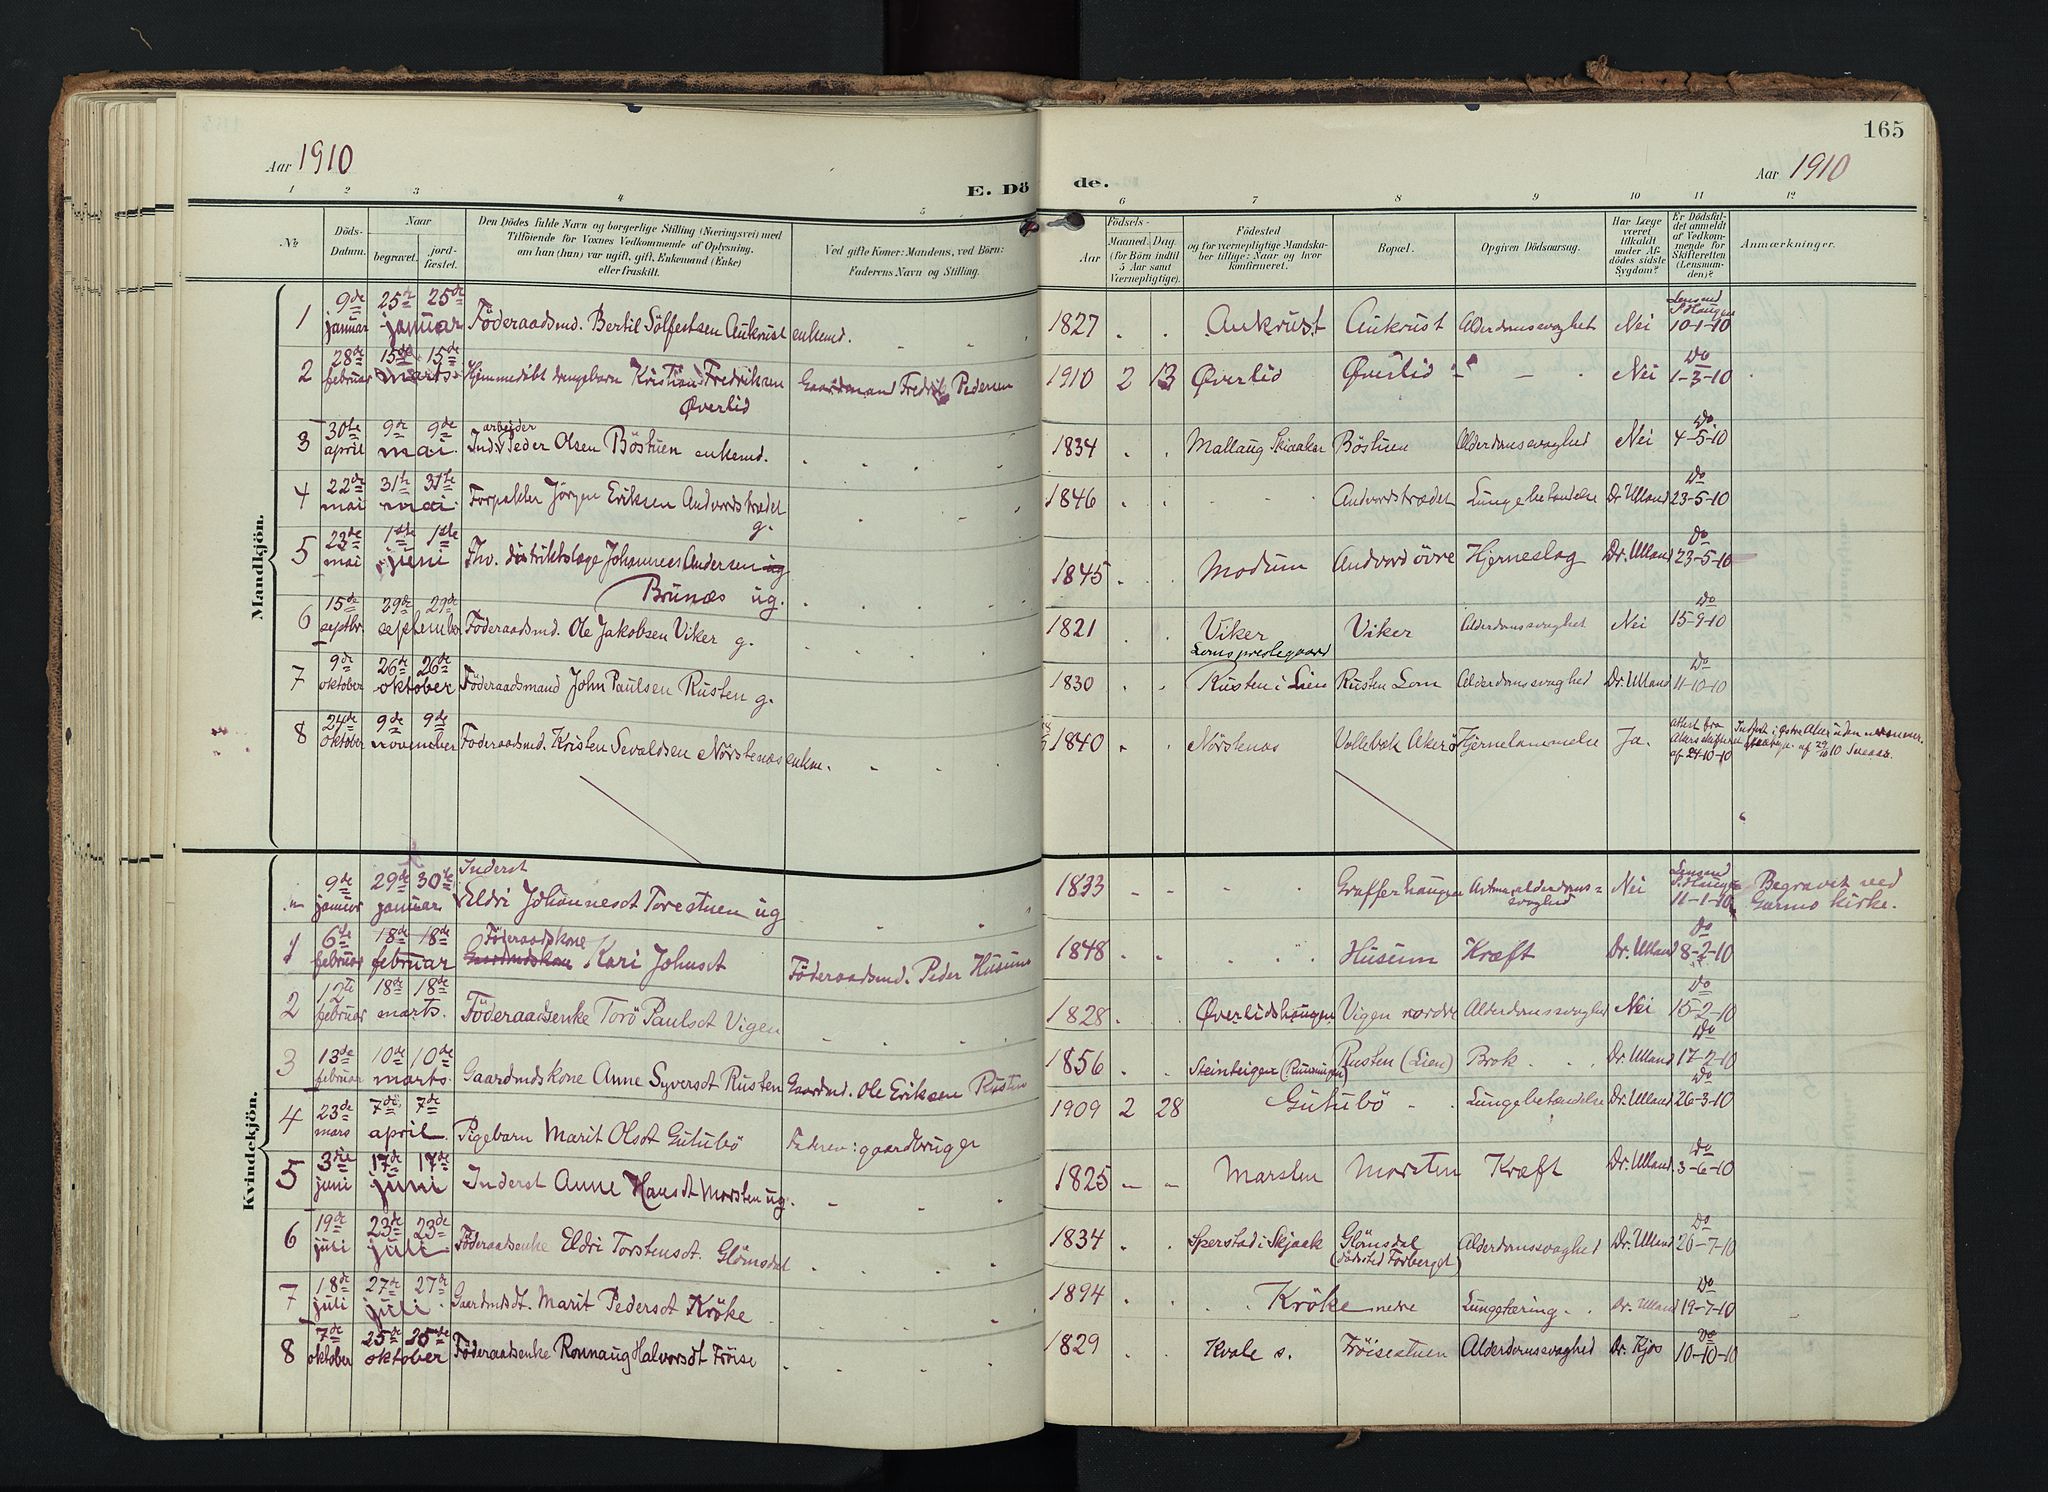 165
Aar 1910
Aar 1910
E. Dö de.
1 2 3 4 5 6 7 8 9 10 11 12
№
Döds-Datum.
Naar
begravet.
jordfæstet.
Den Dödes fulde Navn og borgerlige Stilling (Næringsvei) med
Tilföiende for Voxnes Vedkommende af Oplysning,
om han (hun) var ugift, gift, Enkemand (Enke)
eller fraskilt.
Ved gifte Koner: Mandens, ved Börn:
Faderens Navn og Stilling.
Födsels-
Aar
Maaned. Dag.
(for Börn indtil
5 Aar samt
Værnepligtige).
Födested
og for værnepligtige Mandskaber tillige: Naar og hvor
konfirmeret.
Bopæl.
Opgiven Dödsaarsag.
Har Læge
været
tilkaldt
under Afdödes sidste
Sygdom?
Er Dödsfaldet anmeldt
af Vedkommende for
Skifteretten
(Lensmanden)?
Anmærkninger.
Mandkjön.
1 9de januar 25de 25de januar Föderaadsmd. Bertil Sölfestsen Aukrust enkemd. 1827 Aukrust Aukrust Alderdomssvaghet Nei Lensmd S. Haugen 10-1-10
2 28de februar 15de 15de marts Hjemmedöbt drengebarn Kristian Fredriksen Øverlid Gaardmand Fredrik Pedersen 1910 2 13 Øverlid Øverlid Nei Do 1-3-10
3 30te april 9de 9de mai Ind. arbejder Peder Olsen Böstuen enkemd. 1834 Mallaug Skiaaker Böstuen Alderdomssvaghed Nei Do 4-5-10
4 22de mai 31te 31te mai Forpakter Jörgen Eriksen Andvordstrædet g. 1846 Andvordstrædet Lungebetændelse Dr Ulland Do 23-5-10
5 23de mai 1ste 1ste juni Fhv. distriktslæge Johannes Andersen ug Brunæs ug. 1845 Modum Andvord övre Hjerneslag Dr. Ulland Do 23-5-10
6 15de septbr 29de 29de september Föderaadsmd. Ole Jakobsen Viker g. 1821 Viker Loms prestegaard Viker Alderdomssvaghet Nei Do 15-9-10
7 9de oktober 26de 26de oktober Föderaadsmand John Paulsen Rusten g. 1830 Rusten i Lien Rusten Lom Alderdomssvaghed Dr. Ulland Do 11-10-10
8 24de oktober 9de 9de november Föderaadsmd. Kristen Sevaldsen Nörstenæs enkm. 1840 Nörstenæs Vollebæk Aker Hjernelammelse Ja. attest fra Akers skifteret af 24-10-10
Kvindekjön.
9de januar 29de 30te januar Inderst Eldri Johannesdt Torestuen ug 1833 Grafferhaugen Astma, alderdomssvaghed Nei Lensmd S. Haugen 11-1-10 Begravet ved Garmo kirke.
1 6te februar 18de 18de februar Föderaadskone Gaardmdskone Kari Johnsdt Föderaadsmd. Peder Husum 1848 Husum Kræft Dr. Ulland Do 8-2-10
2 12te februar 18de 18de marts. Föderaadsenke Torö Paulsdt Vigen 1828 Øverlidshaugen Vigen nordre Alderdomssvaghed Nei Do 15-2-10
3 13de februar 10de 10de marts. Gaardmdskone Anne Syversdt Rusten Gaardmd. Ole Eriksen Rusten 1856 Steinteigen Rusten (Lien) Brok Dr. Ulland Do 17-2-10
4 23de mars 7de 7de april Pigebarn Marit Olsdt Gutubö Faderen: gaardbruger 1909 2 28 Gutubö Lungebetændelse Dr. Ulland Do 26-3-10
5 3die juni 17de 17de juni Inderst Anne Hansdt Marsten ug. 1825 Marsten Marsten Kræft Dr. Ulland Do 3-6-10
6 19de juli 23de 23de juli Föderaadsenke Eldri Torstensdt. Glömsdal 1834 Sperstad i Skjaak Glömsdal (dödsted Forberget) Alderdomssvaghed Dr. Ulland Do 20-7-10
7 18de juli 27de 27de juli Gaardmdsdt. Marit Pedersdt Kröke 1894 Kröke nedre Lungetæring Dr. Ulland Do 19-7-10
8 7de oktober 25de 25de oktober Föderaadsenke Ronnaug Halvorsdt Fröise 1829 Kvale s. Fröisestuen Alderdomssvaghed Dr. Kjos Do 10-10-10